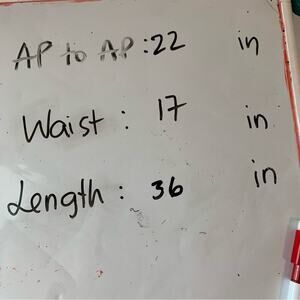 AP to AP : 22 in
Waist : 17 in
Length : 36 in